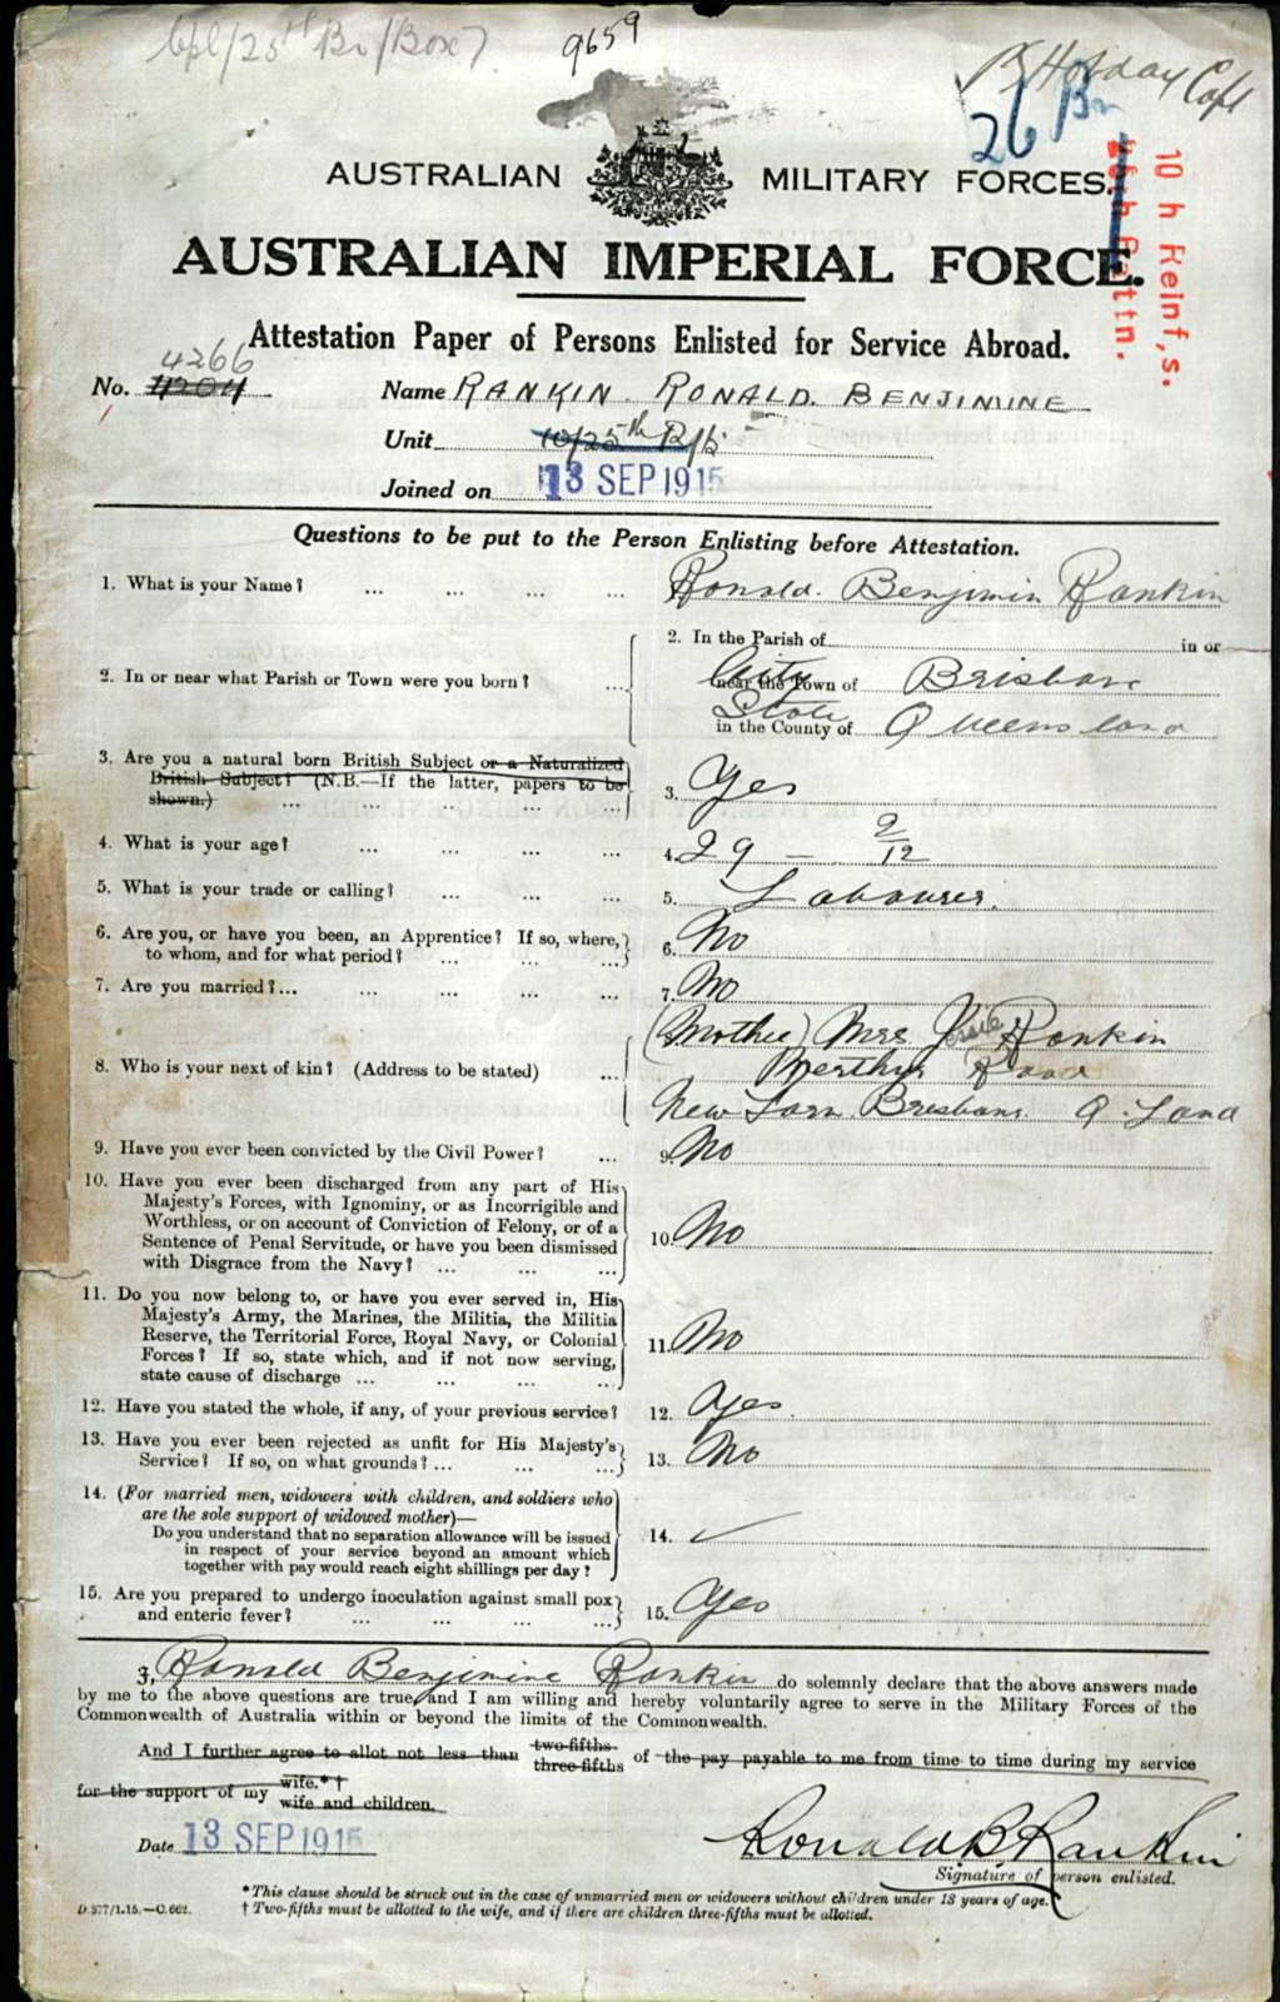 Cpl/25th Bn/Box 7
9659
Holday Capt
26 Bn
AUSTRALIAN MILITARY FORCES.
10 h Reinf,s.
Battn.
AUSTRALIAN IMPERIAL FORCE.
Attestation Paper of Persons Enlisted for Service Abroad.
4266
No. 4204 Name RANKIN. RONALD. BENJIMINE
Unit 10/25th R/fs
Joined on 13 SEP 1915
Questions to be put to the Person Enlisting before Attestation.
1. What is your Name? ... ... ... ... Ronald. Benjimin Rankin
2. In the Parish of in or
2. In or near what Parish or Town were you born? ... City near the Town of Brisbane
State in the County of Queensland
3. Are you a natural born British Subject or a Naturalized
British Subject? (N.B.—If the latter, papers to be
shown.) ... ... ... ... 3. Yes
4. What is your age? ... ... ... ... 4. 29 — 2/12
5. What is your trade or calling? ... ... ... 5. Labourer.
6. Are you, or have you been, an Apprentice? If so, where,
to whom, and for what period? ... ... ... 6. No
7. Are you married?... ... ... ... ... 7. No
(Mother) Mrs Jessie Rankin
8. Who is your next of kin? (Address to be stated) ... Merthyr Road
New Farm. Brisbane. Q. Land
9. Have you ever been convicted by the Civil Power? ... 9. No
10. Have you ever been discharged from any part of His
Majesty's Forces, with Ignominy, or as Incorrigible and
Worthless, or on account of Conviction of Felony, or of a
Sentence of Penal Servitude, or have you been dismissed
with Disgrace from the Navy? ... ... ... 10. No
11. Do you now belong to, or have you ever served in, His
Majesty's Army, the Marines, the Militia, the Militia
Reserve, the Territorial Force, Royal Navy, or Colonial
Forces? If so, state which, and if not now serving,
state cause of discharge ... ... ... ... 11. No
12. Have you stated the whole, if any, of your previous service? 12. Yes.
13. Have you ever been rejected as unfit for His Majesty's
Service? If so, on what grounds? ... ... ... 13. No
14. (For married men, widowers with children, and soldiers who
are the sole support of widowed mother)—
Do you understand that no separation allowance will be issued
in respect of your service beyond an amount which
together with pay would reach eight shillings per day? 14.
15. Are you prepared to undergo inoculation against small pox
and enteric fever? ... ... ... ... 15. Yes
I, Ronald Benjimine Rankin do solemnly declare that the above answers made
by me to the above questions are true, and I am willing and hereby voluntarily agree to serve in the Military Forces of the
Commonwealth of Australia within or beyond the limits of the Commonwealth.
And I further agree to allot not less than two-fifths three-fifths of the pay payable to me from time to time during my service
for the support of my wife.*† wife and children.
Date 13 SEP 1915
Ronald B Rankin
Signature of person enlisted.
* This clause should be struck out in the case of unmarried men or widowers without children under 18 years of age.
D.377/1.15.—C.662. † Two-fifths must be allotted to the wife, and if there are children three-fifths must be allotted.